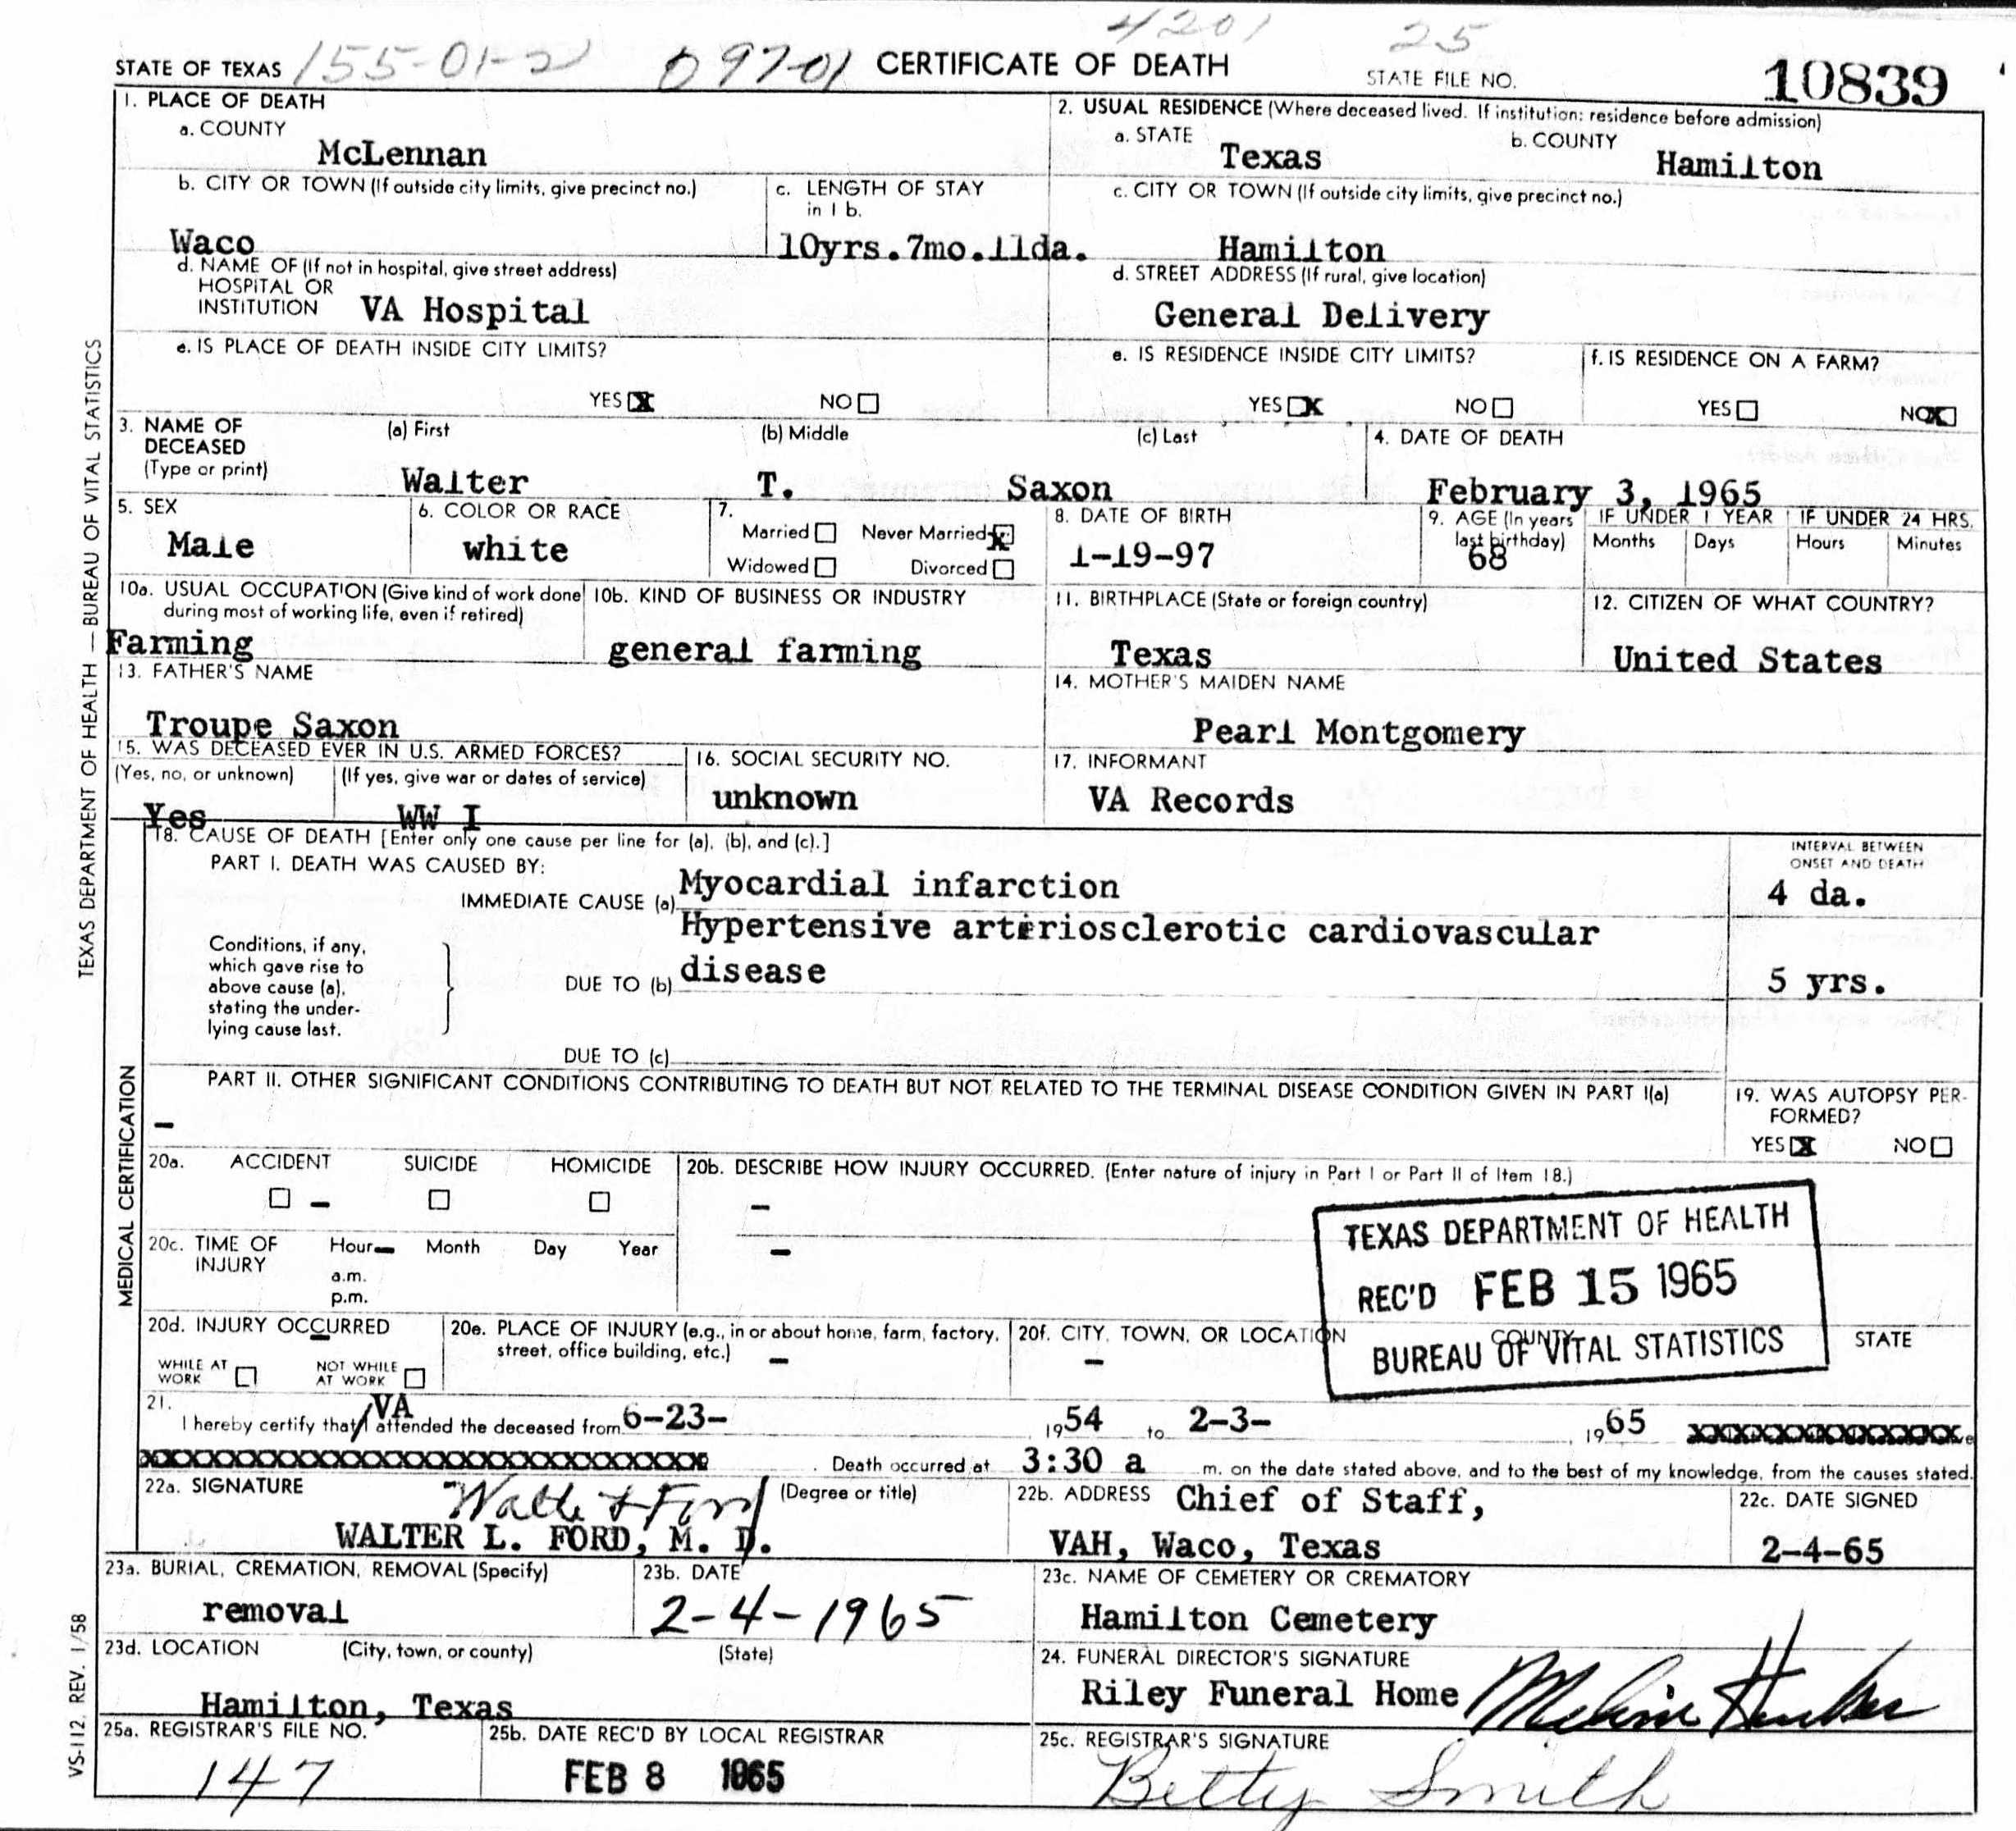 4201 25
STATE OF TEXAS 155-01-2 097-01 CERTIFICATE OF DEATH STATE FILE NO. 10839
1. PLACE OF DEATH
a. COUNTY
McLennan
2. USUAL RESIDENCE (Where deceased lived. If institution: residence before admission)
a. STATE Texas b. COUNTY Hamilton
b. CITY OR TOWN (If outside city limits, give precinct no.)
Waco
c. LENGTH OF STAY
in 1 b.
10yrs.7mo.11da.
c. CITY OR TOWN (If outside city limits, give precinct no.)
Hamilton
d. NAME OF (If not in hospital, give street address)
HOSPITAL OR
INSTITUTION VA Hospital
d. STREET ADDRESS (If rural, give location)
General Delivery
e. IS PLACE OF DEATH INSIDE CITY LIMITS?
YES X NO
e. IS RESIDENCE INSIDE CITY LIMITS?
YES X NO
f. IS RESIDENCE ON A FARM?
YES NO X
3. NAME OF
DECEASED
(Type or print)
(a) First (b) Middle (c) Last
Walter T. Saxon
4. DATE OF DEATH
February 3, 1965
5. SEX
Male
6. COLOR OR RACE
white
7.
Married Never Married X
Widowed Divorced
8. DATE OF BIRTH
1-19-97
9. AGE (In years
last birthday)
68
IF UNDER 1 YEAR
Months Days
IF UNDER 24 HRS.
Hours Minutes
10a. USUAL OCCUPATION (Give kind of work done
during most of working life, even if retired)
Farming
10b. KIND OF BUSINESS OR INDUSTRY
general farming
11. BIRTHPLACE (State or foreign country)
Texas
12. CITIZEN OF WHAT COUNTRY?
United States
13. FATHER'S NAME
Troupe Saxon
14. MOTHER'S MAIDEN NAME
Pearl Montgomery
15. WAS DECEASED EVER IN U.S. ARMED FORCES?
(Yes, no, or unknown) (If yes, give war or dates of service)
Yes WW I
16. SOCIAL SECURITY NO.
unknown
17. INFORMANT
VA Records
18. CAUSE OF DEATH [Enter only one cause per line for (a), (b), and (c).]
PART I. DEATH WAS CAUSED BY:
INTERVAL BETWEEN
ONSET AND DEATH
IMMEDIATE CAUSE (a) Myocardial infarction 4 da.
Hypertensive arteriosclerotic cardiovascular
Conditions, if any,
which gave rise to
above cause (a),
stating the under-
lying cause last.
DUE TO (b) disease 5 yrs.
DUE TO (c)
PART II. OTHER SIGNIFICANT CONDITIONS CONTRIBUTING TO DEATH BUT NOT RELATED TO THE TERMINAL DISEASE CONDITION GIVEN IN PART I(a)
–
19. WAS AUTOPSY PER-
FORMED?
YES X NO
20a. ACCIDENT SUICIDE HOMICIDE
–
20b. DESCRIBE HOW INJURY OCCURRED. (Enter nature of injury in Part I or Part II of Item 18.)
–
20c. TIME OF
INJURY
Hour – Month Day Year
a.m.
p.m.
–
TEXAS DEPARTMENT OF HEALTH
REC'D FEB 15 1965
BUREAU OF VITAL STATISTICS
20d. INJURY OCCURRED
WHILE AT
WORK
NOT WHILE
AT WORK
20e. PLACE OF INJURY (e.g., in or about home, farm, factory,
street, office building, etc.) –
20f. CITY, TOWN, OR LOCATION COUNTY STATE
–
21.
I hereby certify that / VA attended the deceased from 6-23- 1954 to 2-3- 1965 xxxxxxxxxxxxxxxxxx
xxxxxxxxxxxxxxxxxxxxxxxxxxxxxxxxx. Death occurred at 3:30 a m. on the date stated above, and to the best of my knowledge, from the causes stated.
22a. SIGNATURE Walter L Ford (Degree or title)
WALTER L. FORD, M. D.
22b. ADDRESS Chief of Staff,
VAH, Waco, Texas
22c. DATE SIGNED
2-4-65
23a. BURIAL, CREMATION, REMOVAL (Specify)
removal
23b. DATE
2-4-1965
23c. NAME OF CEMETERY OR CREMATORY
Hamilton Cemetery
23d. LOCATION (City, town, or county) (State)
Hamilton, Texas
24. FUNERAL DIRECTOR'S SIGNATURE
Riley Funeral Home
25a. REGISTRAR'S FILE NO.
147
25b. DATE REC'D BY LOCAL REGISTRAR
FEB 8 1965
25c. REGISTRAR'S SIGNATURE
Betty Smith
TEXAS DEPARTMENT OF HEALTH — BUREAU OF VITAL STATISTICS
MEDICAL CERTIFICATION
VS-112, REV. 1/58